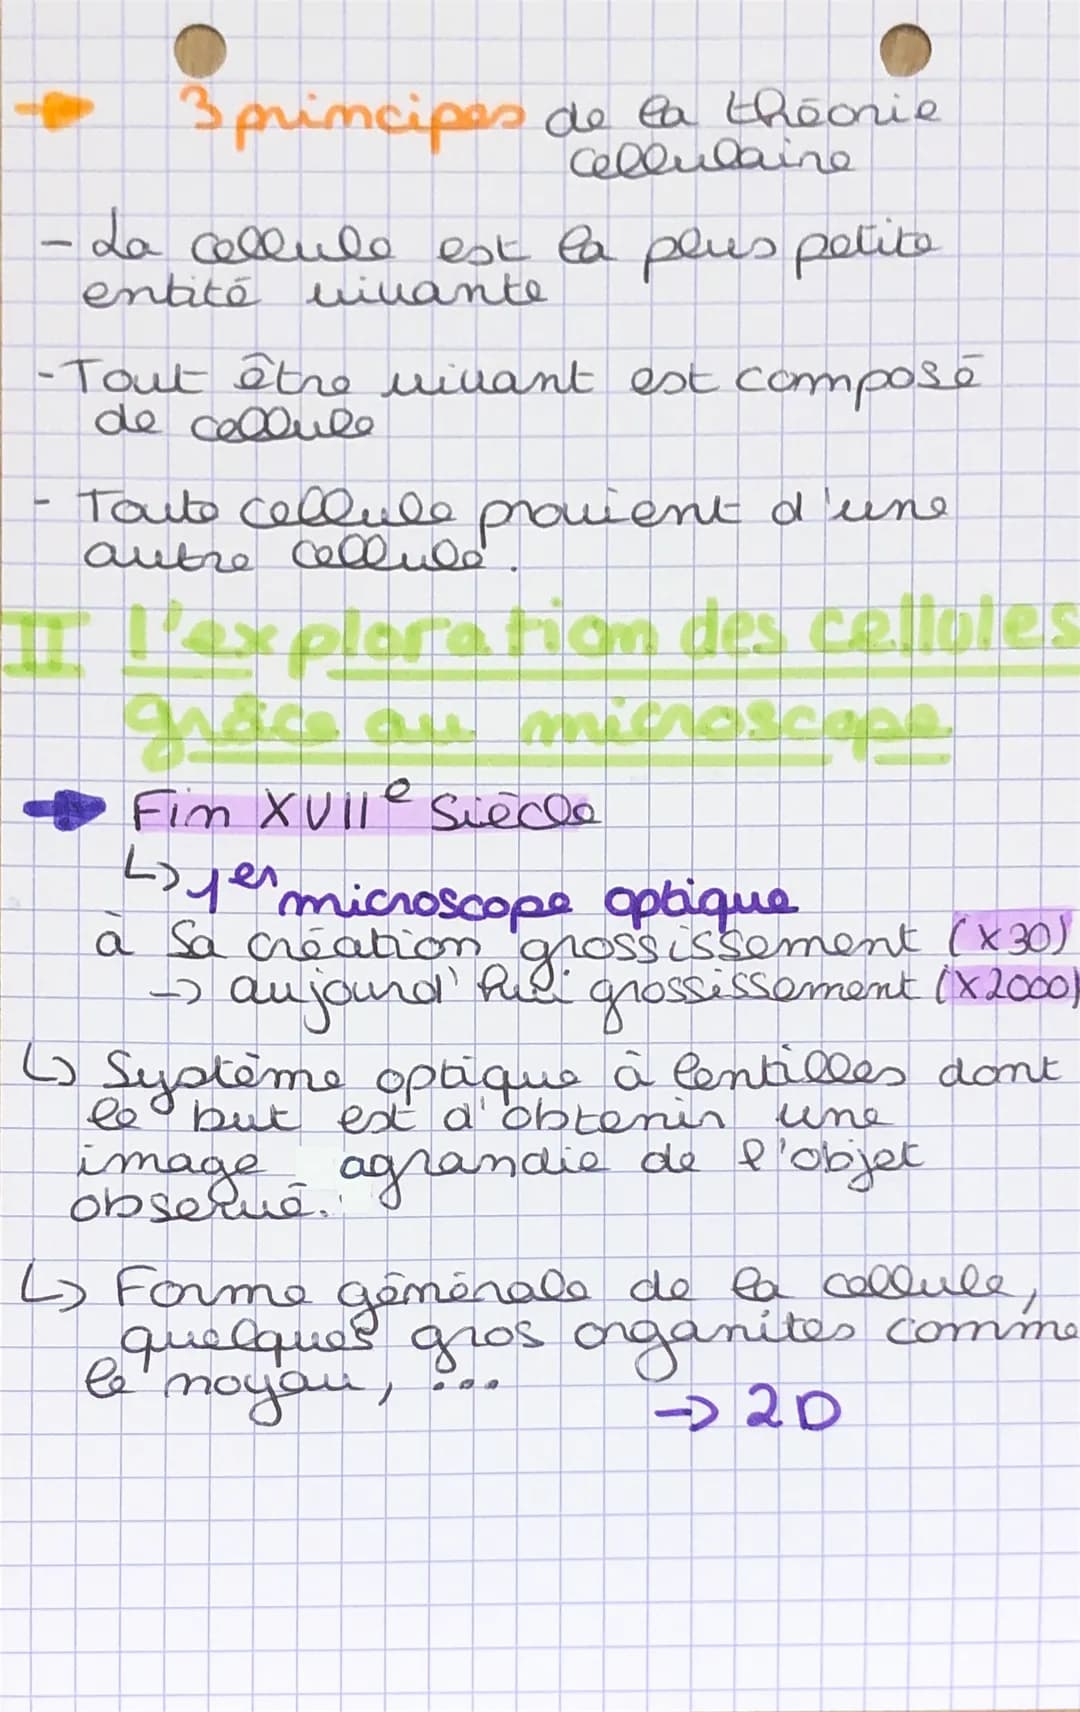 → 3 principes de la théorie
cellulaire
- La cellule est la plus petite
entité vivante
- Tout être vivant est composé
de cellule
- Toute cellule provient d'une
autre cellule.
II l'exploration des cellules
grâce au microscope
→ Fin XVIIe Siècle
↳ 1er microscope optique
à sa création grossissement (x30)
→ aujourd'hui grossissement (x2000)
↳ Système optique à lentilles dont
le but est d'obtenir une
image agrandie de l'objet
observé.
↳ Forme générale de la cellule,
quelques gros organites comme
le noyau, ...
→ 2D